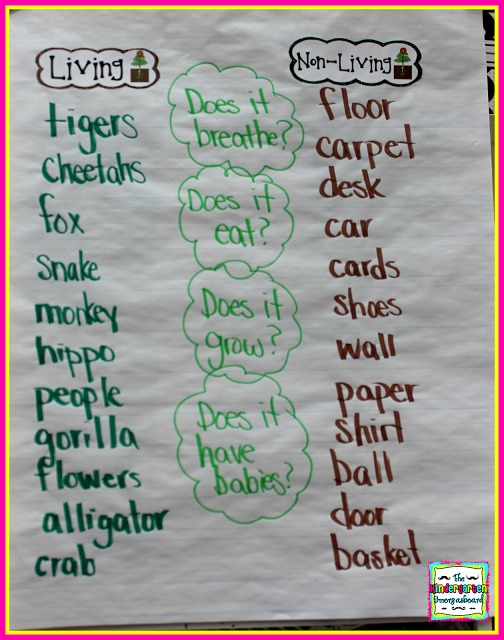 Living
tigers
cheetahs
fox
snake
monkey
hippo
people
gorilla
flowers
alligator
crab
Does it
breathe?
Does it
eat?
Does it
grow?
Does it
have
babies?
Non-Living
floor
carpet
desk
car
cards
shoes
wall
paper
shirt
ball
door
basket
the
Kindergarten
Smorgasboard